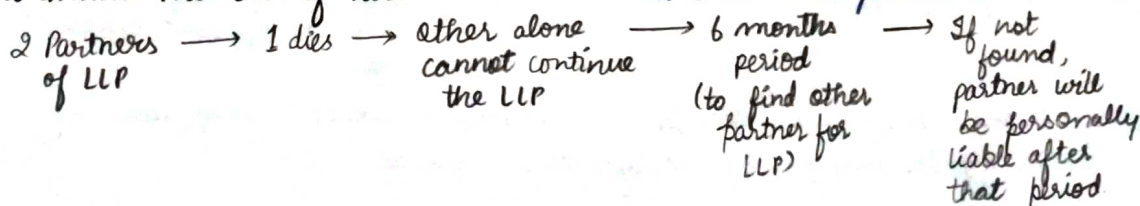 2 Partners of LLP → 1 dies → other alone cannot continue the LLP → 6 months period (to find other partner for LLP) → If not found, partner will be personally liable after that period